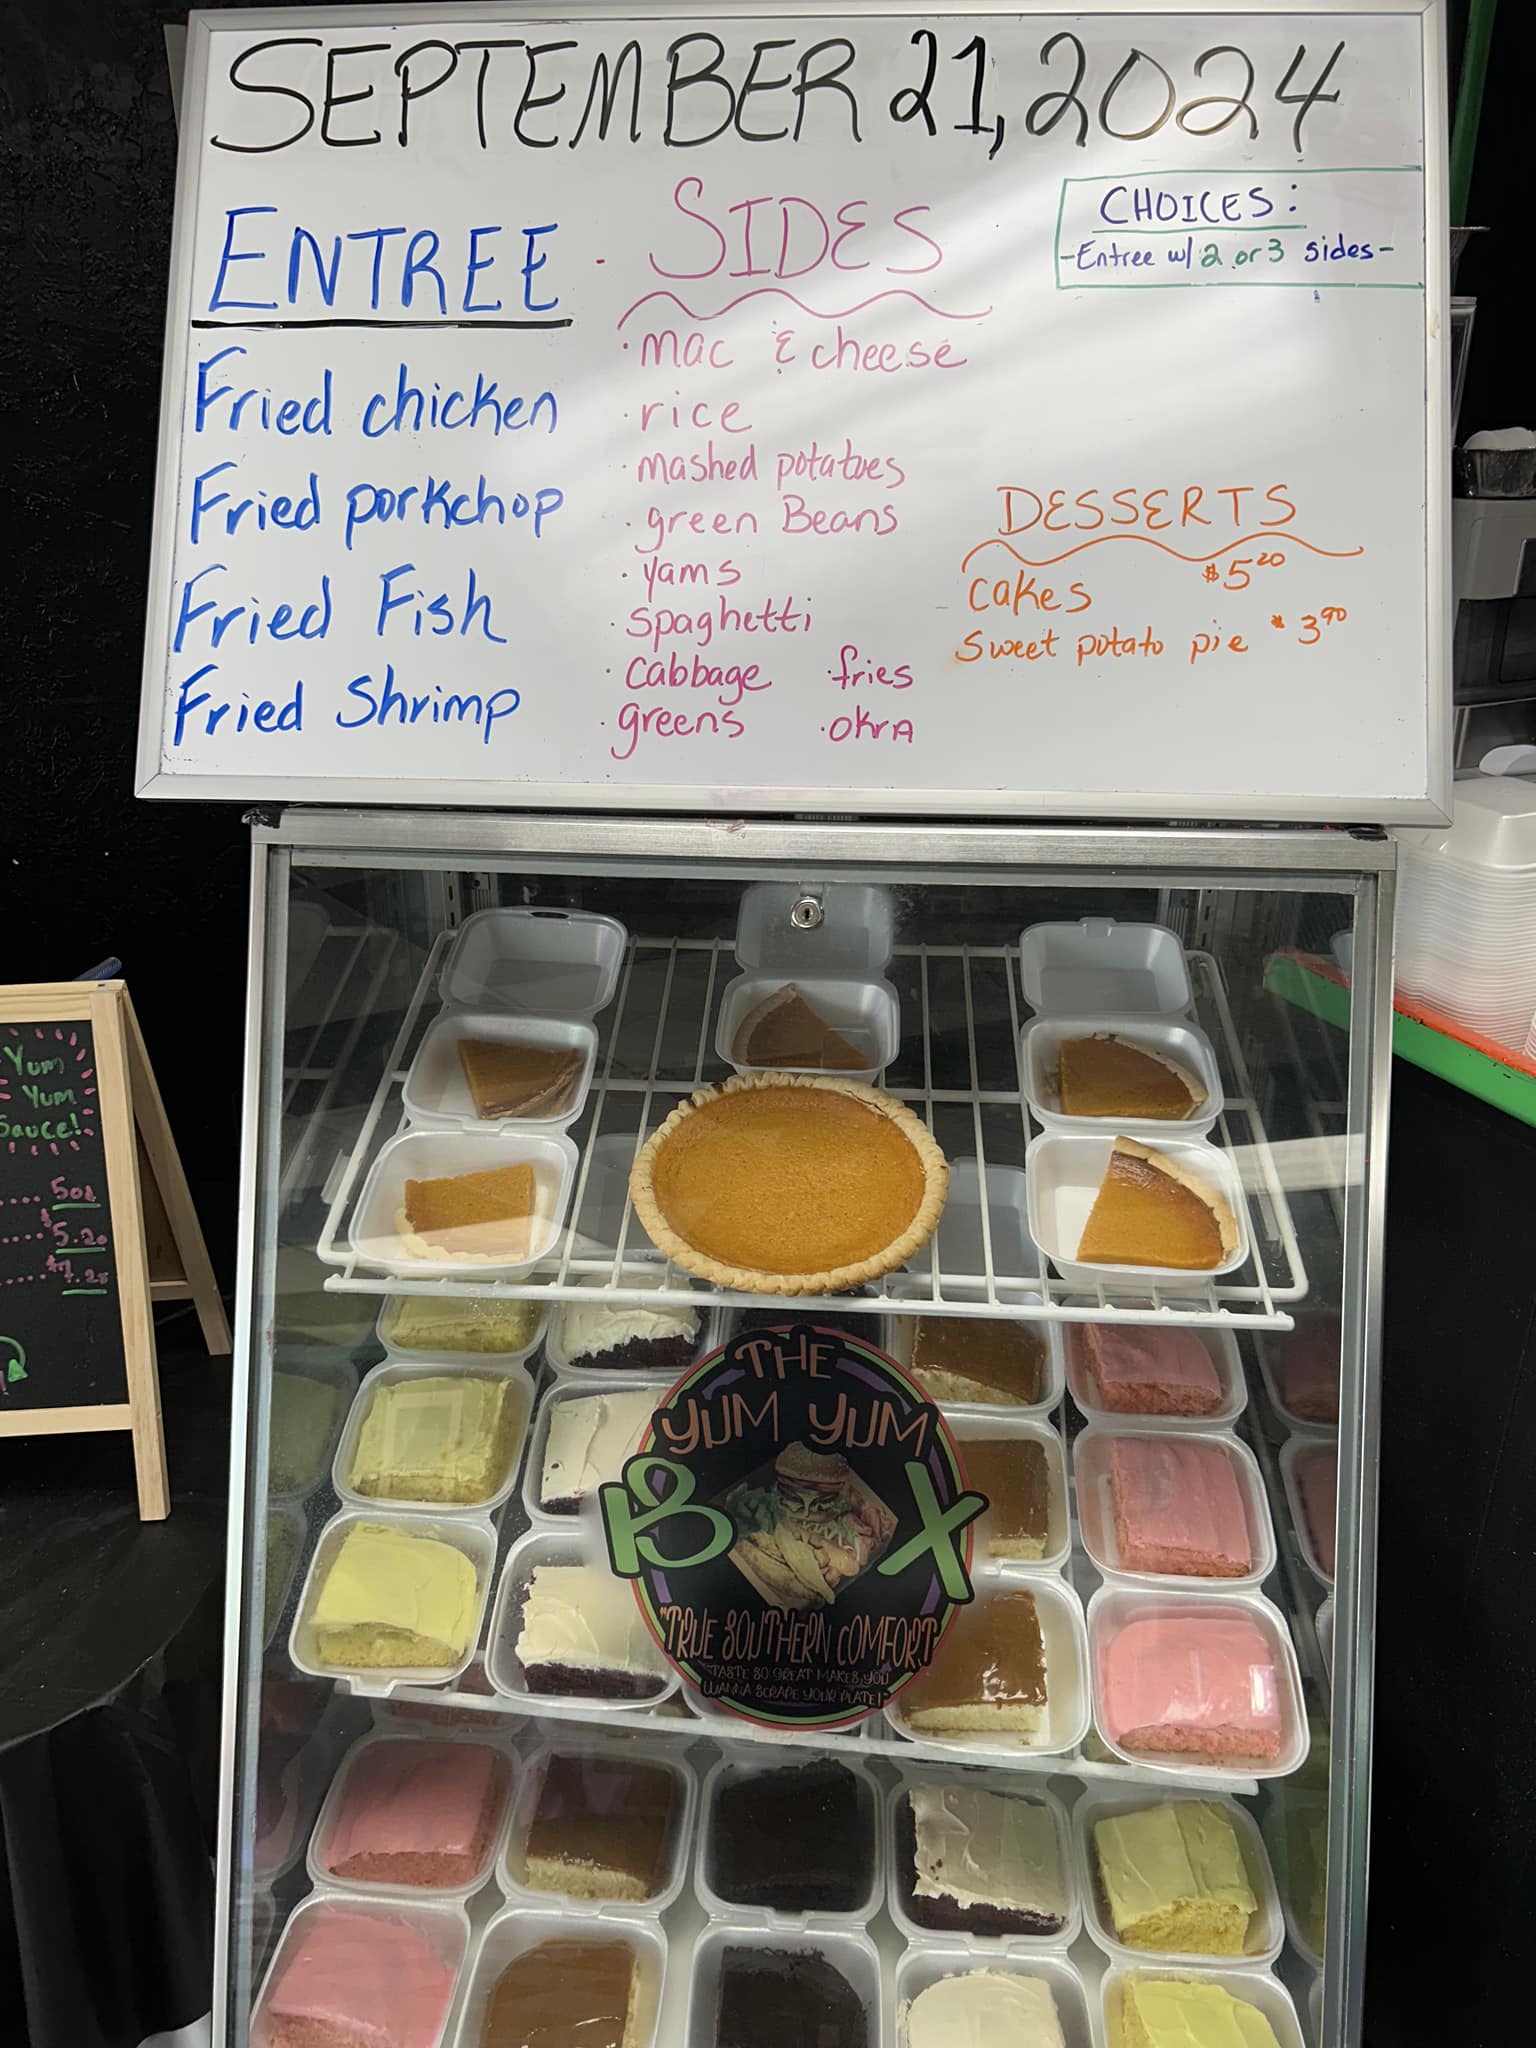 SEPTEMBER 21, 2024
ENTREE
Fried chicken
Fried porkchop
Fried Fish
Fried Shrimp
SIDES
· mac & cheese
· rice
· mashed potatoes
· green Beans
· yams
· spaghetti
· cabbage · fries
· greens · okrA
CHOICES:
-Entree w/ 2 or 3 sides-
DESSERTS
cakes $5.20
Sweet potato pie $3.90
Yum
Yum
Sauce!
.... 50¢
.... $5.20
.... $7.25
THE
YUM YUM
BOX
"TRUE SOUTHERN COMFORT"
TASTE SO GREAT MAKES YOU
WANNA SCRAPE YOUR PLATE!